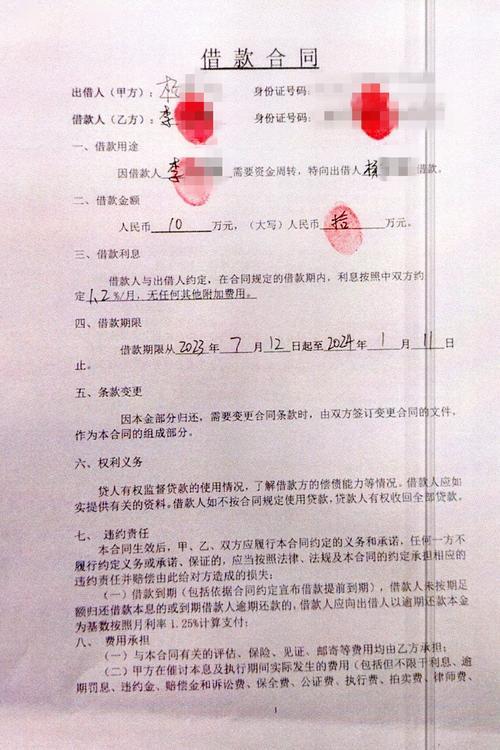 借款合同
出借人（甲方）： 身份证号码：
借款人（乙方）：李 身份证号码：
一、借款用途
因借款人李 需要资金周转，特向出借人 借款。
二、借款金额
人民币 10 万元，（大写）人民币 拾 万元。
三、借款利息
借款人与出借人约定，在合同规定的借款期内，利息按照中双方约
定1.2%/月，无任何其他附加费用。
四、借款期限
借款期限从2023年7月12日起至2024年1月11日
止。
五、条款变更
因本金部分归还，需要变更合同条款时，由双方签订变更合同的文件，
作为本合同的组成部分。
六、权利义务
贷人有权监督贷款的使用情况，了解借款方的偿债能力等情况。借款人应如
实提供有关的资料。借款人如不按合同规定使用贷款，贷款人有权收回全部贷款。
七、违约责任
本合同生效后，甲、乙、双方应履行本合同约定的义务和承诺，任何一方不
履行约定义务或承诺、保证的，应当按照法律、法规及本合同的约定承担相应的
违约责任并赔偿由此给对方造成的损失：
（一）借款到期（包括依据合同约定宣布借款提前到期），借款人未按期足
额归还借款本息的或到期借款人逾期还款的，借款人应向出借人以逾期还款本金
为基数按照月利率1.25%计算支付；
八、费用承担
（一）与本合同有关的评估、保险、见证、邮寄等费用均由乙方承担；
（二）甲方在催讨本息及执行期间实际发生的费用（包括但不限于利息、逾
期罚息、违约金、赔偿金和诉讼费、保全费、公证费、执行费、拍卖费、律师费、
1